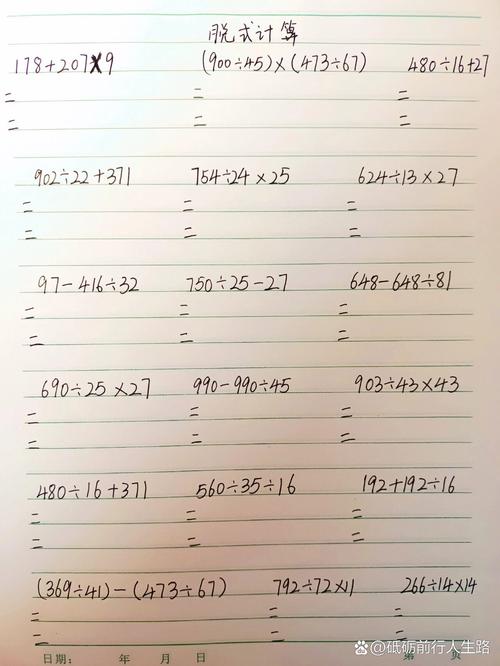 脱式计算
178+207×9 (900÷45)×(473÷67) 480÷16+27
= = =
= = =
902÷22+371 754÷24×25 624÷13×27
= = =
= = =
97-416÷32 750÷25-27 648-648÷81
= = =
= = =
690÷25×27 990-990÷45 903÷43×43
= = =
= = =
480÷16+371 560÷35÷16 192+192÷16
= = =
= = =
(369÷41)-(473÷67) 792÷72×11 266÷14×14
= = =
= = =
日期: 年 月 日 第 页
@砥砺前行人生路